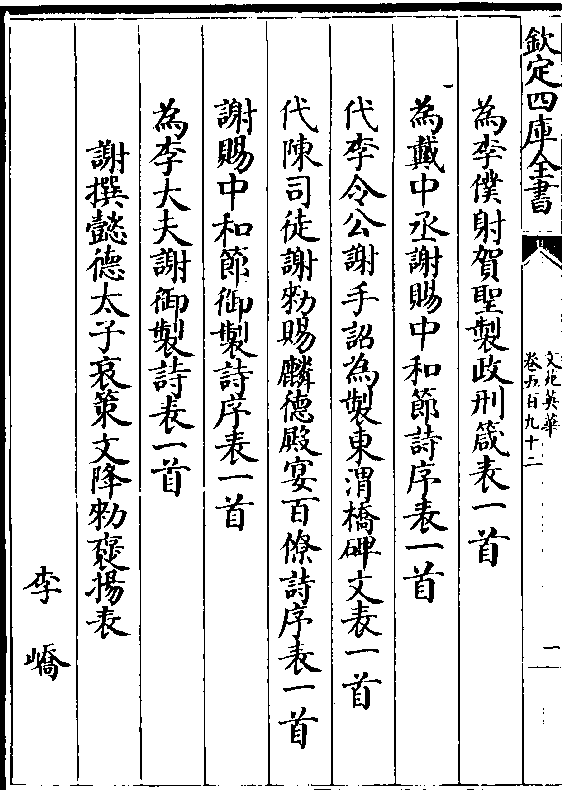 欽定四庫全書
文苑英華
卷五百九十二
一
為李僕射賀聖製政刑箴表一首
為戴中丞謝賜中和節詩序表一首
代李令公謝手詔為製東渭橋碑文表一首
代陳司徒謝勑賜麟德殿宴百僚詩序表一首
謝賜中和節御製詩序表一首
為李大夫謝御製詩表一首
謝撰懿德太子哀策文降勑褒揚表
李嶠